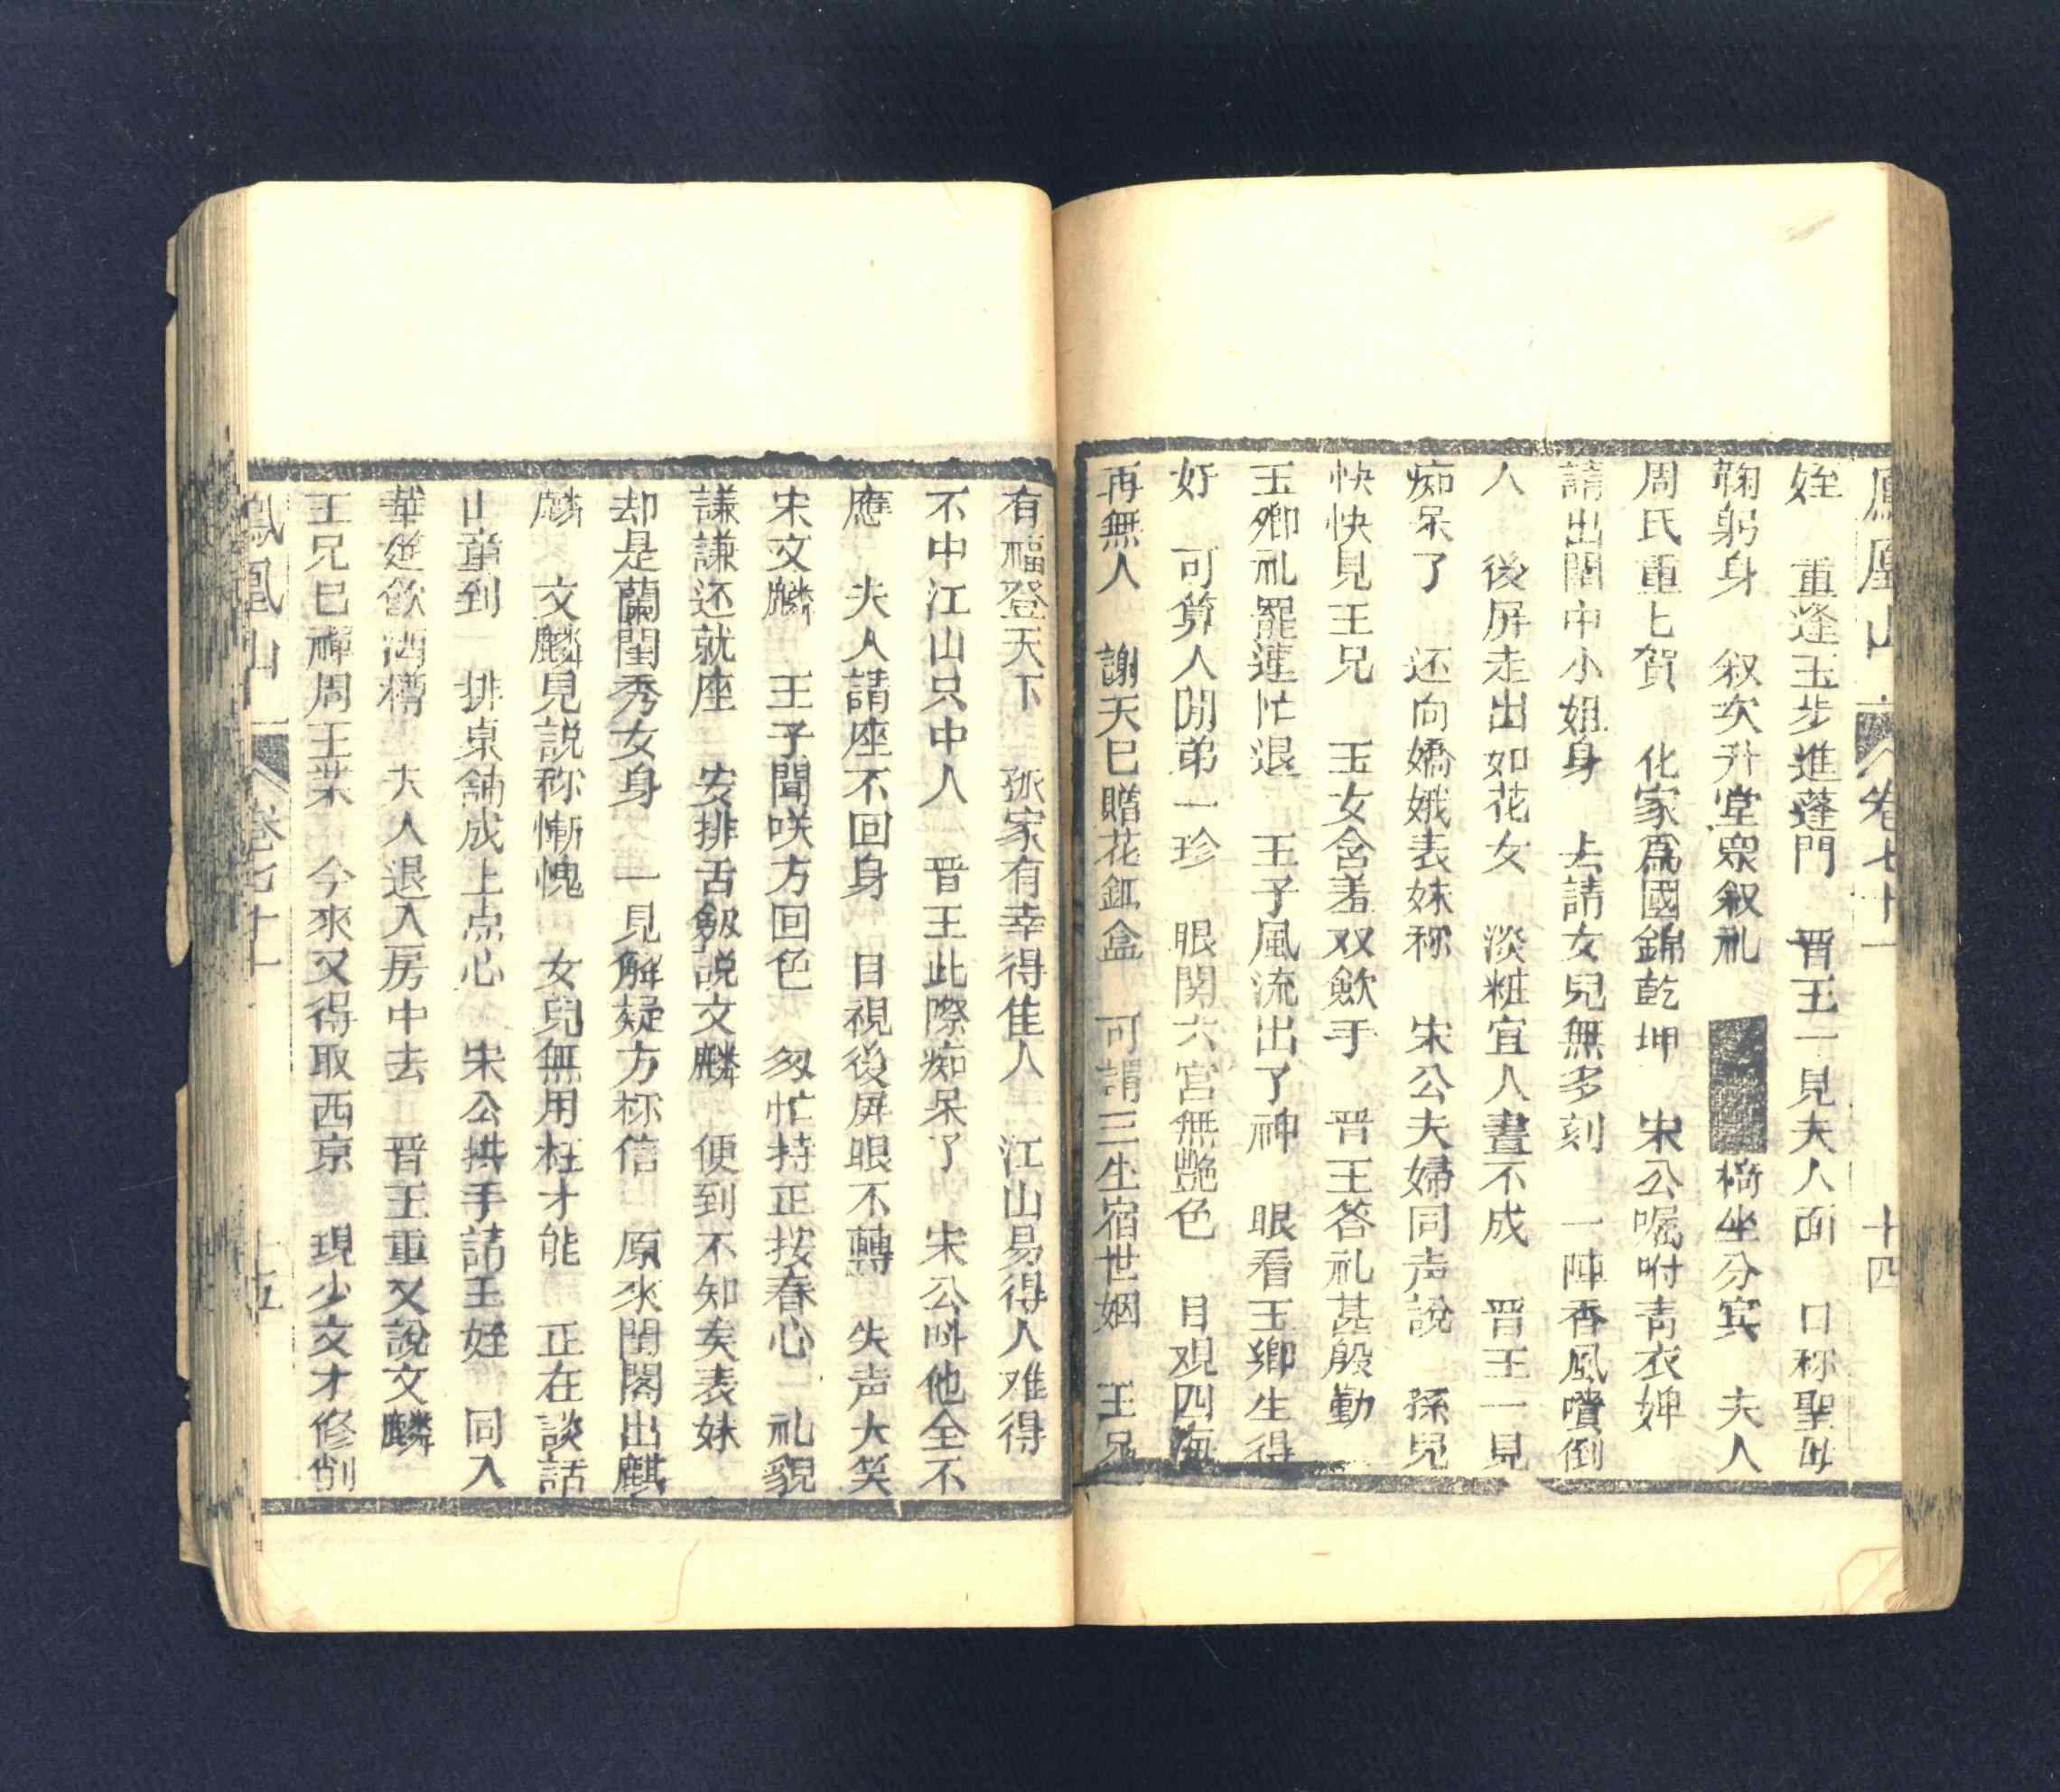 鳳凰山 卷七十一 十四
姪 重逢玉步進蓬門 晋王一見夫人面 口称聖母
鞠躬身 叙次升堂衆叙礼 椅坐分宾 夫人
周氏重上賀 化家爲國錦乾坤 宋公嘱咐青衣婢
請出閣中小姐身 去請女兒無多刻 一陣香風噴倒
人 後屏走出如花女 淡粧宜人畫不成 晋王一見
痴呆了 还向嬌娥表妹称 宋公夫婦同声說 孫兒
快快見王兄 玉女含羞双歛手 晋王答礼甚殷勤
玉卿礼罷連忙退 王子風流出了神 眼看玉卿生得
好 可算人間弟一珍 眼関六宮無艷色 目观四海
再無人 謝天已贈花鈿盒 可謂三生宿世姻 王兄
有福登天下 孤家有幸得佳人 江山易得人难得
不中江山只中人 晋王此際痴呆了 宋公呌他全不
應 夫人請座不回身 目視後屏眼不轉 失声大笑
宋文麟 王子聞咲方回色 匆忙持正按春心 礼貌
謙謙还就座 安排舌劔説文麟 便到不知矣表妹
却是蘭閨秀女身 一見解疑方称信 原來閨閣出麒
麟 文麟見説称慚愧 女兒無用枉才能 正在談話
山童到 排桌舖成上点心 宋公拱手請王姪 同入
華筵飲酒樽 夫人退入房中去 晋王重又說文麟
王兄已禪周王業 今來又得取西京 現少文才修削
鳳凰山 卷七十一 十五